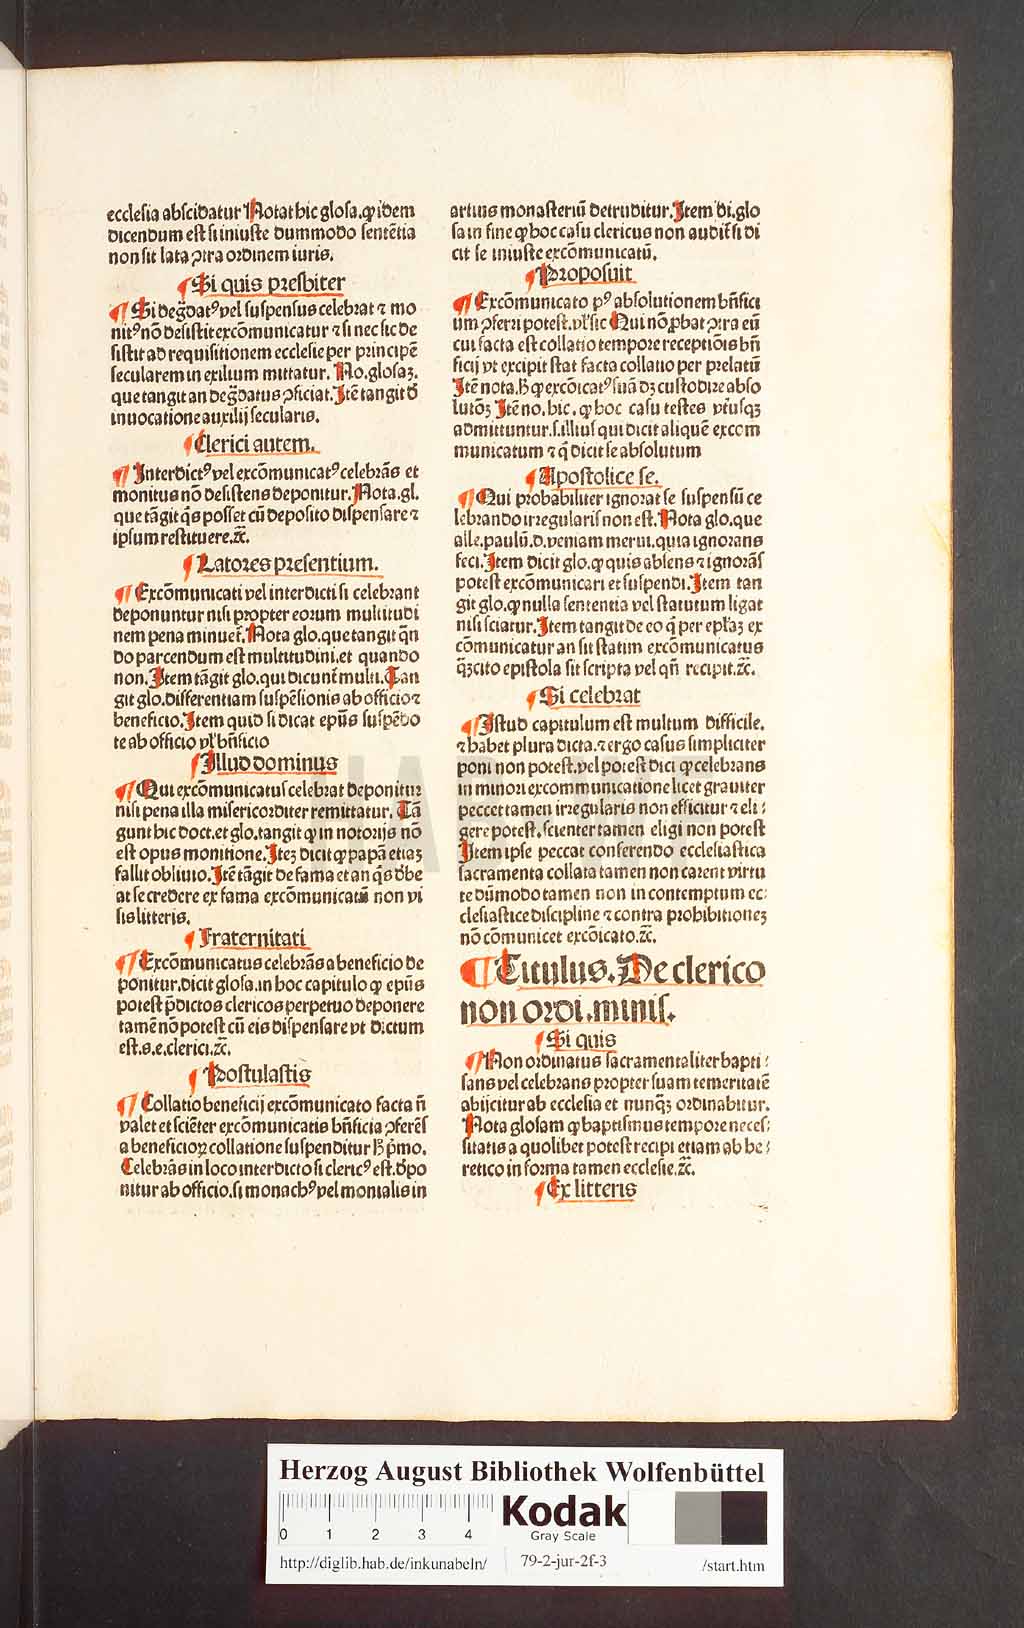 ecclesia abscidatur Notat hic glosa. ꝙ idem
dicendum est si iniuste dummodo sentētia
non sit lata ↄtra ordinem iuris.
¶ Si quis presbiter
¶ Si deg̃datꝰ vel suspensus celebrat ⁊ mo
nitꝰ nō desistit excōmunicatur ⁊ si nec sic de
sistit ad requisitionem ecclesie per principē
secularem in exilium mittatur. No. glosaꝫ.
que tangit an deg̃datus ↄficiat. Itē tangit đ
inuocatione auxilij secularis.
¶ Clerici autem.
¶ Interdictꝰ vel excōmunicatꝰ celebrās et
monitus nō desistens deponitur. Nota. gl.
que tāgit q̄s posset cū deposito dispensare ⁊
ipsum restituere. ⁊c̄.
¶ Latores presentium.
¶ Excōmunicati vel interdicti si celebrant
deponuntur nisi propter eorum multitudi
nem pena minuet᷑. Nota glo. que tangit qn̄
do parcendum est multitudini. et quando
non. Item tāgit glo. qui dicunt᷑ multi. Tan
git glo. differentiam suspēsionis ab officio ⁊
beneficio. Item quid si dicat ep̄us suspēdo
te ab officio vl̕ bn̄ficio
¶ Illud dominus
¶ Qui excōmunicatus celebrat deponitur
nisi pena illa misericorditer remittatur. Tā
gunt hic doct. et glo. tangit ꝙ in notorijs nō
est opus monitione. Iteꝫ dicit ꝙ papā etiaꝫ
fallit obliuio. Itē tāgit de fama et an q̄s đbe
at se credere ex fama excōmunicatū non vi
sis litteris.
¶ Fraternitati
¶ Excōmunicatus celebrās a beneficio de
ponitur. dicit glosa. in hoc capitulo ꝙ ep̄us
potest p̄dictos clericos perpetuo deponere
tamē nō potest cū eis dispensare vt dictum
est. s. e. clerici. ⁊c̄.
¶ Postulastis
¶ Collatio beneficij excōmunicato facta n̄
valet et sciēter excōmunicatis bn̄ficia ↄferēs
a beneficioꝝ collatione suspenditur h̄ p̄mo.
Celebrās in loco interdicto si clericꝰ est. đpo
nitur ab officio. si monachꝰ vel monialis in
artius monasteriū detruditur. Item đi. glo
sa in fine ꝙ hoc casu clericus non audit᷑ si di
cit se iniuste excōmunicatū.
¶ Proposuit
¶ Excōmunicato pꝰ absolutionem bn̄fici
um ↄferri potest. vl̕ sic Qui nō ꝓbat ↄtra eū
cui facta est collatio tempore receptiōis bn̄
ficij vt excipit stat facta collatio per prelatū
Itē nota. h̄ ꝙ excōicatꝰ suā dꝫ custodire abso
lutōꝫ Itē no. hic. ꝙ hoc casu testes vt᷑usqꝫ
admittuntur. s. illius qui dicit aliquē excom
municatum ⁊ q̄ dicit se absolutum
¶ Apostolice se.
¶ Qui probabiliter ignorat se suspensū ce
lebrando irregularis non est. Nota glo. que
alle. paulū. d. veniam merui. quia ignorans
feci. Item dicit glo. ꝙ quis absens ⁊ ignorās
potest excōmunicari et suspendi. Item tan
git glo. ꝙ nulla sententia vel statutum ligat
nisi sciatur. Item tangit de eo q̄ per ep̄l̕aꝫ ex
cōmunicatur an sit statim excōmunicatus
qꝫcito epistola sit scripta vel qn̄ recipit. ⁊c̄.
¶ Si celebrat
¶ Istud capitulum est multum difficile.
⁊ habet plura dicta. ⁊ ergo casus simpliciter
poni non potest. vel potest dici ꝙ celebrans
in minori excommunicatione licet grauiter
peccet tamen irregularis non efficitur ⁊ eli⸗
gere potest. scienter tamen eligi non potest
Item ipse peccat conferendo ecclesiastica
sacramenta collata tamen non carent virtu
te dūmodo tamen non in contemptum ec⸗
clesiastice discipline ⁊ contra prohibitioneꝫ
nō cōmunicet excōicato. ⁊c̄.
¶ Titulus. De clerico
non ordi. minis.
¶ Si quis
¶ Non ordinatus sacramentaliter bapti⸗
sans vel celebrans propter suam temeritatē
abijcitur ab ecclesia et nunqꝫ ordinabitur.
Nota glosam ꝙ baptismus tempore neces⸗
sitatis a quolibet potest recipi etiam ab he⸗
retico in forma tamen ecclesie. ⁊c̄.
¶ Ex litteris
HAB · WF
Herzog August Bibliothek Wolfenbüttel
0 1 2 3 4
Kodak
Gray Scale
http://diglib.hab.de/inkunabeln/ 79-2-jur-2f-3 /start.htm